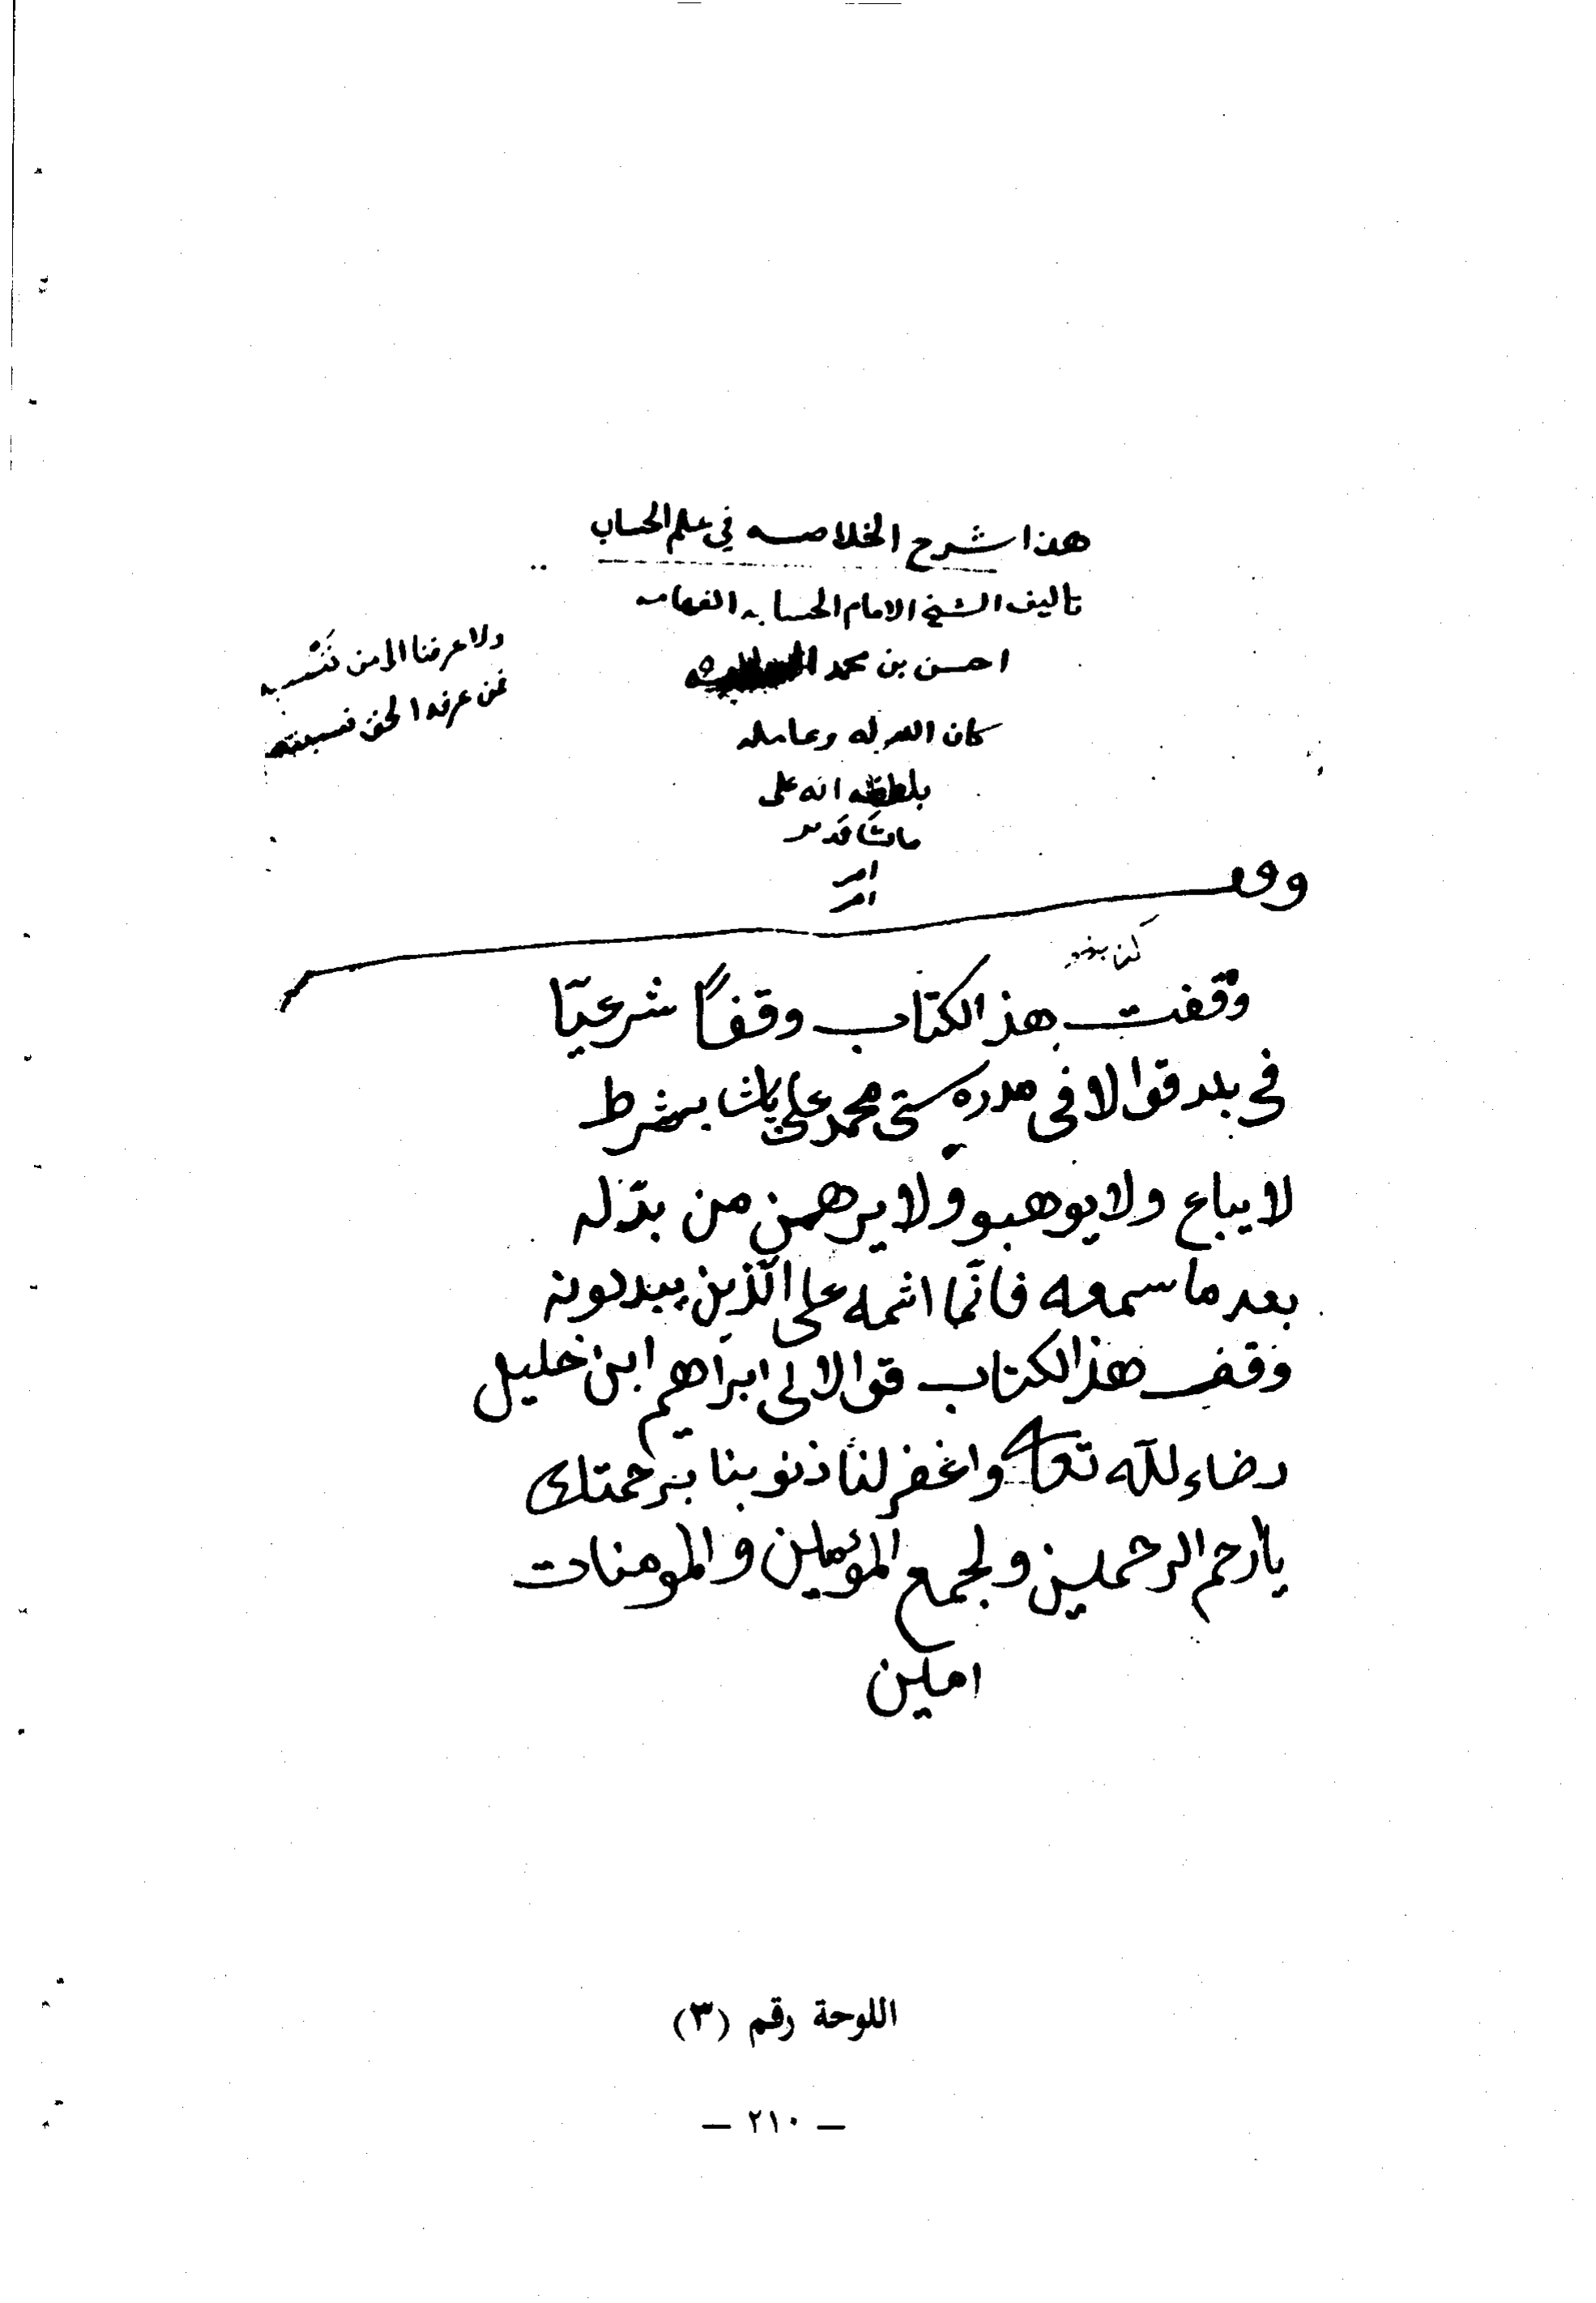 هذا شرح الخلاصه في علم الحساب
تاليف الشيخ الامام الحسابه الفهامه
احسن بن محمد
كان الله له وعامله
بلطفه انه على
ما يشا قدير
ولا عرفنا الى من
الحق
وقف
وقفت هذ الكتاب وقفاً شرعيّا
فى بلد قوالا فى مدره ستى محمد على پاشا بشرط
لا يباع ولا يوهبو ولا يرهمن من بدّله
بعد ما سمعه فانّما اثمه على الّذين يبدلونه
وقف هذ الكتاب قوالا لى ابراهيم ابن خليل
رضاء لله تعا واغفر لنا ذنوبنا برحمتك
يا ارحم الرحمين ولجمع المؤمنين والمومنات
امين
اللوحة رقم (٣)
— ٢١٠ —